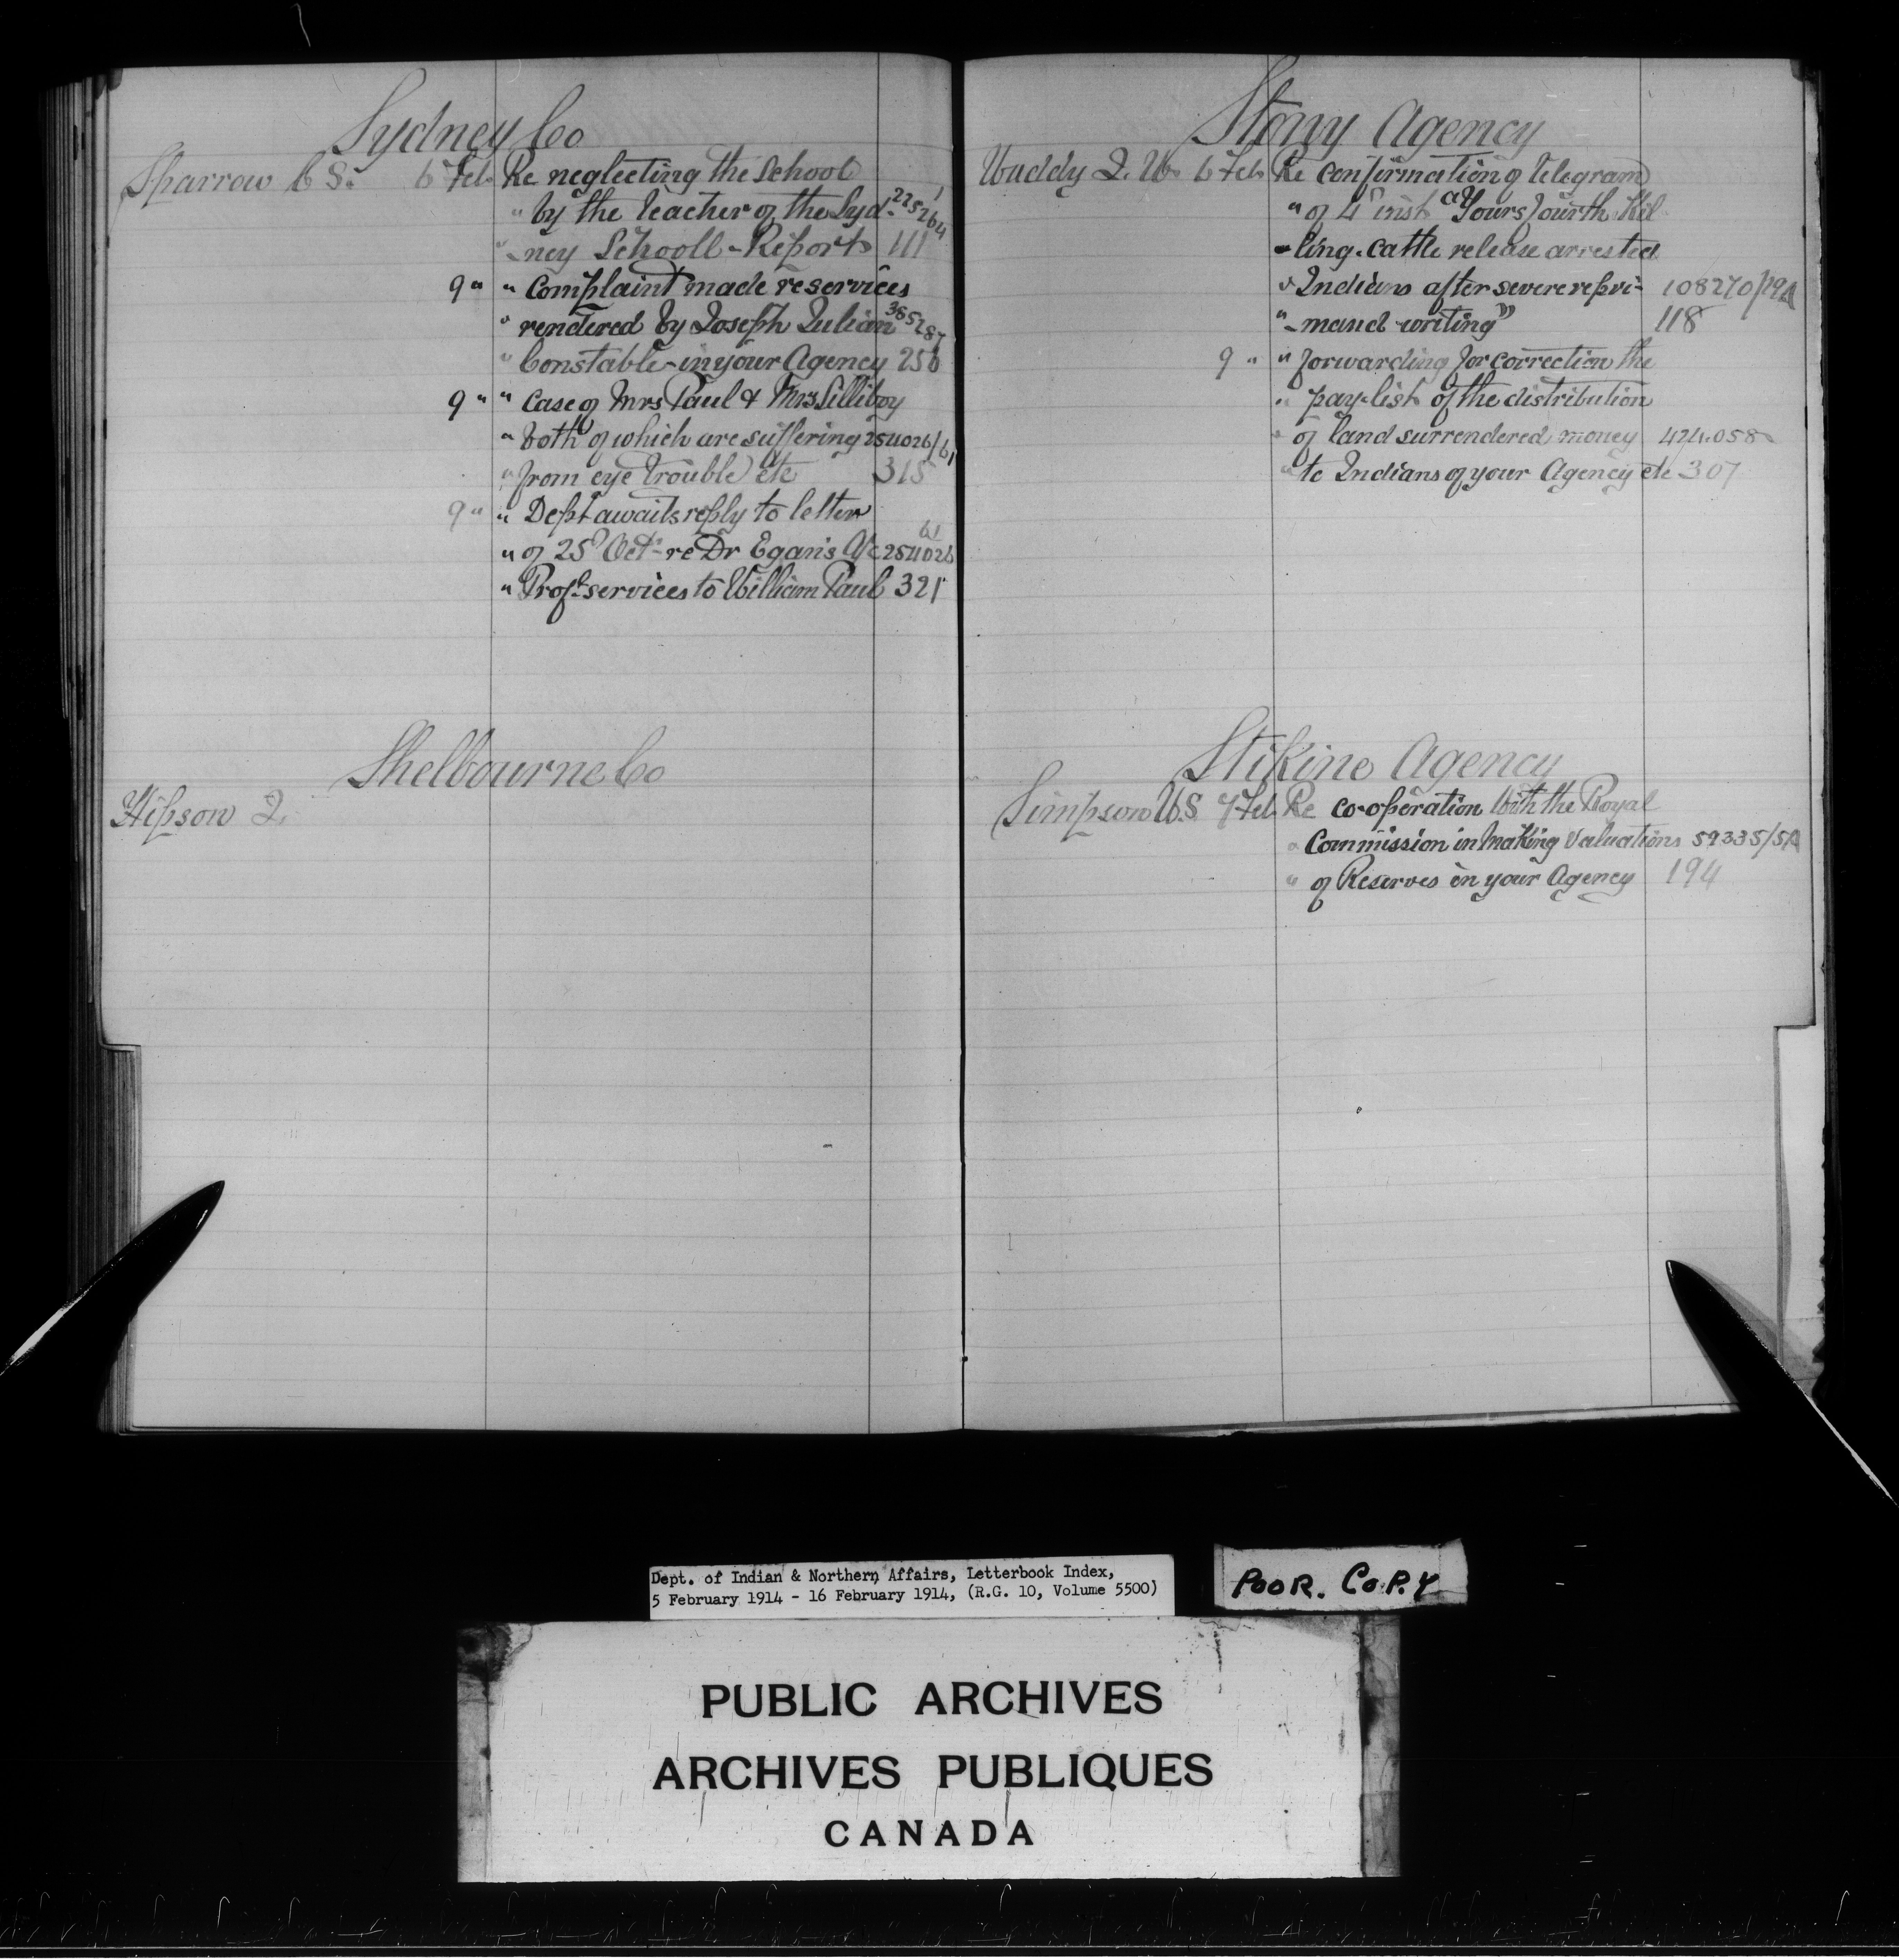 Sydney Co
Sparrow C S. 6 Feb. Re neglecting the School
" by the teacher of the Syd- 225264/1
" -ney Schooll - Report 111
9 " " Complaint made re services
" rendered by Joseph Julian 385287
" Constable - in your Agency 256
9 " " case of Mrs Paul & Mrs Lilliboy
" both of which are suffering 254026/61
" from eye trouble etc 315
9 " " Dept awaits reply to letter
" of 25th Octr re Dr Egan's A/c 254026/61
" Profl services to William Paul 321
Shelbourne Co
Hipson J.
Stony Agency
Waddy J. W. 6 Feb. Re confirmation of telegram
" of 4th inst "Yours fourth Kil
-ling cattle release arrested
" Indians after severe repri- 108270/19A
" -mand writing" 118
9 " " forwarding for correction the
" pay-list of the distribution
" of land surrendered money 424.058
" to Indians of your Agency etc 307
Stikine Agency
Simpson W.S 7 Feb. Re co-operation with the Royal
" Commission in making valuations 59335/5A
" of Reserves in your Agency 194
Dept. of Indian & Northern Affairs, Letterbook Index,
5 February 1914 - 16 February 1914, (R.G. 10, Volume 5500)
POOR. COPY
PUBLIC ARCHIVES
ARCHIVES PUBLIQUES
CANADA